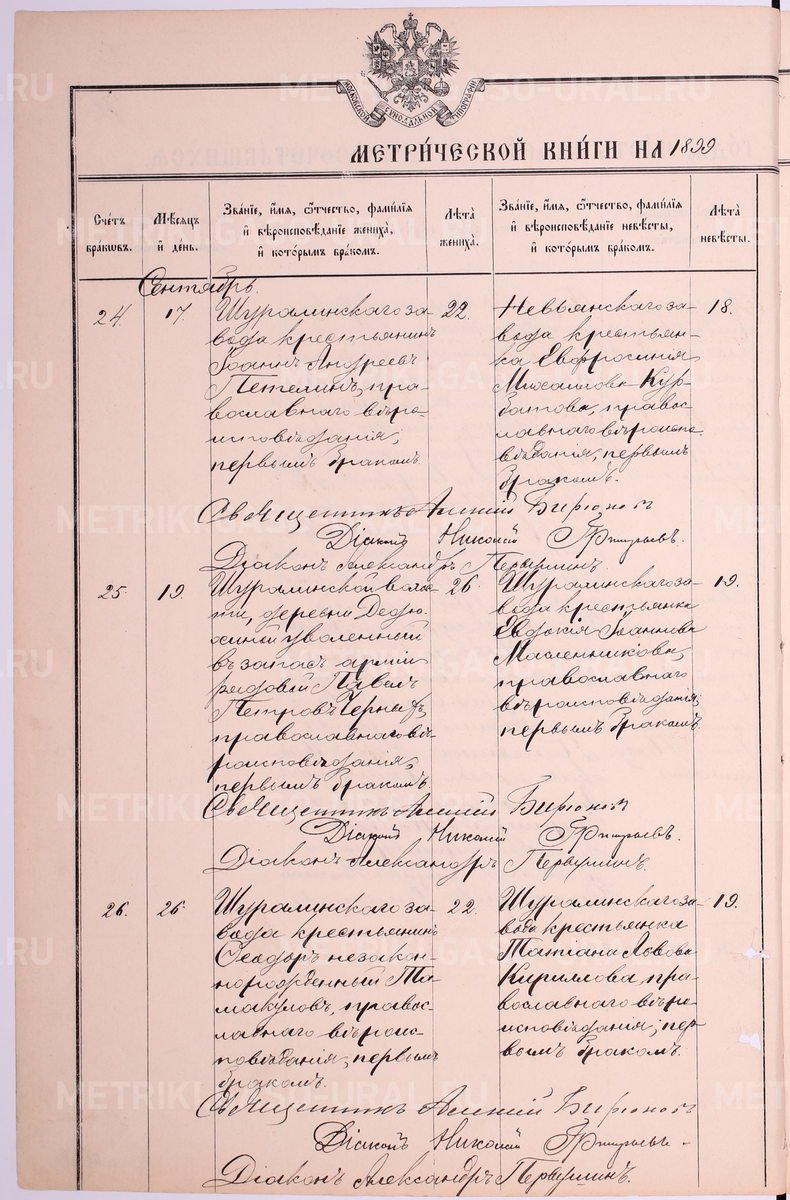 МОСКОВСКОЙ СѴНОДАЛЬНОЙ ТИПОГРАФІИ
МЕТРИ́ЧЕСКОЙ КНИ́ГИ НА 1899
Сче́тъ бра́ковъ.
Мѣ́сяцъ и́ де́нь.
Зва́нїе, и́мя, ѻ҆́тчество, фами́лїя и́ вѣроисповѣ́данїе жениха̀, и́ кото́рымъ бра́комъ.
Лѣ́та жениха̀.
Зва́нїе, и́мя, ѻ҆́тчество, фами́лїя и́ вѣроисповѣ́данїе невѣ́сты, и́ кото́рымъ бра́комъ.
Лѣ́та невѣ́сты.
Сентябрь.
24.
17.
Шуралинскаго за-
вода крестьянинъ
Іоаннъ Андреевъ
Петелинъ, пра-
вославнаго вѣро-
исповѣданія,
первымъ бракомъ.
22.
Невьянскаго за-
вода крестьян-
ка Евфросинія
Михаилова Кур-
батова, правос-
лавнаго вѣроиспо-
вѣданія, первымъ
бракомъ.
18.
Священникъ Бирюковъ
Діаконъ Николай Григорьевъ.
Діаконъ Александръ Первушинъ.
25.
19
Шуралинской волос-
ти, деревни Федю-
синой уволенный
въ запасъ арміи
рядовой Павелъ
Петровъ Черныхъ,
православнаго вѣ-
роисповѣданія,
первымъ бракомъ.
26.
Шуралинскаго за-
вода крестьянка
Евдокія Іоаннова
Масленникова,
православнаго
вѣроисповѣданія,
первымъ бракомъ.
19.
Священникъ Бирюковъ
Діаконъ Николай Григорьевъ.
Діаконъ Александръ Первушинъ.
26.
26
Шуралинскаго за-
вода крестьянинъ
Ѳеодоръ незакон-
норожденный Та-
макуловъ, правос-
лавнаго вѣроис-
повѣданія, первымъ
бракомъ.
22.
Шуралинскаго за-
вода крестьянка
Татіана Львова
Кириллова, пра-
вославнаго вѣро-
исповѣданія, пер-
вымъ бракомъ.
19.
Священникъ Бирюковъ
Діаконъ Николай Григорьевъ
Діаконъ Александръ Первушинъ.